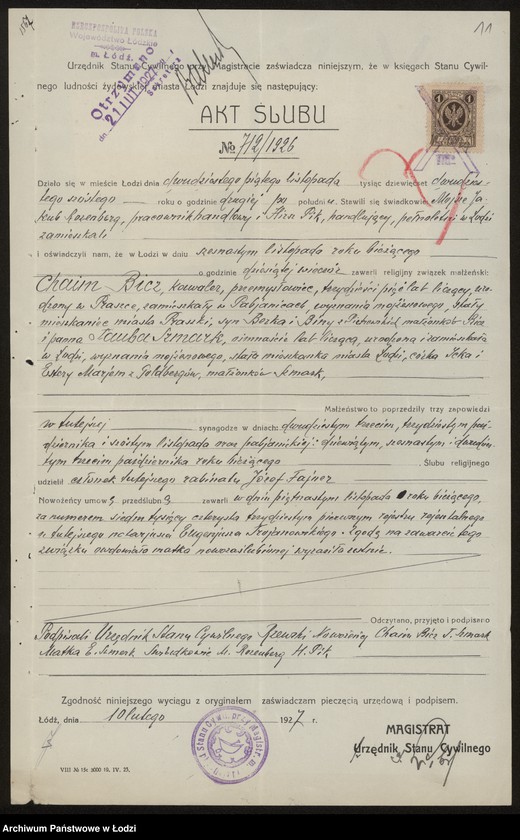 11
RZECZPOSPOLITA POLSKA
Województwo Łódzkie
m. Łódź
Otrzymano
dn. 21 III 1927
Urzędnik Stanu Cywilnego przy Magistracie zaświadcza niniejszym, że w księgach Stanu Cywil-
nego ludności żydowskiej miasta Łodzi znajduje się następujący:
AKT ŚLUBU
№ 712/1926
1
Działo się w mieście Łodzi dnia dwudziestego piątego listopada tysiąc dziewięćset dwudzies-
tego szóstego roku o godzinie drugiej po południu. Stawili się świadkowie Mojże Ja-
kub Rosenberg, pracownik handlowy i Hisza Pik, handlujący, pełnoletni w Łodzi
zamieszkali
i oświadczyli nam, że w Łodzi w dniu szesnastym listopada roku bieżącego
o godzinie dziesiątej wieczór zawarli religijny związek małżeński:
Chaim Bicz, kawaler, przemysłowiec, trzydzieści pięć lat liczący, uro-
dzony w Praszce, zamieszkały w Pabjanicach, wyznania mojżeszowego, stały
mieszkaniec miasta Praszki, syn Berka i Biny z Piotrowskich małżonków Bicz
i panna Tauba Szmark, ośmnaście lat licząca, urodzona i zamieszkała
w Łodzi, wyznania mojżeszowego, stała mieszkanka miasta Łodzi, córka Icka i
Estery Marjem z Goldbergów, małżonków Szmark,
Małżeństwo to poprzedziły trzy zapowiedzi
w tutejszej synagodze w dniach: dwudziestym trzecim, trzydziestym paź-
dziernika i szóstym listopada oraz pabjanickiej: dziewiątym, szesnastym i dwudzies-
tym trzecim października roku bieżącego. Ślubu religijnego
udzielił członek tutejszego rabinatu Józef Fajner
Nowożeńcy umowę przedślubną zawarli w dniu piętnastym listopada roku bieżącego,
za numerem siedm tysięcy czterysta trzydziestym pierwszym rejestru rejentalnego
u tutejszego notarjusza Eugenjusza Trojanowskiego. Zgodę na zawarcie tego
związku owdowiała matka nowozaślubionej wyraziła ustnie.
Odczytano, przyjęto i podpisano
Podpisali Urzędnik Stanu Cywilnego Rzewski Nowożeńcy Chaim Bicz T. Szmark
Matka E. Szmark Świadkowie M. Rosenberg H. Pik
Zgodność niniejszego wyciągu z oryginałem zaświadczam pieczęcią urzędową i podpisem.
Łódź, dnia 10 lutego 1927 r.
MAGISTRAT
Urzędnik Stanu Cywilnego
VIII № 15c 3000 10. IV. 25.
Archiwum Państwowe w Łodzi